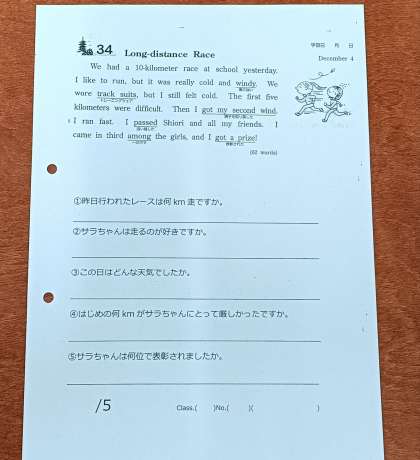 34 Long-distance Race
学習日　月　日
December 4
We had a 10-kilometer race at school yesterday.
I like to run, but it was really cold and windy. We
wore track suits, but I still felt cold. The first five
トレーニングウェア
kilometers were difficult. Then I got my second wind.
I ran fast. I passed Shiori and all my friends. I
追い越した
came in third among the girls, and I got a prize!
〜の中で
表彰された
(62 words)
①昨日行われたレースは何 km 走ですか。
②サラちゃんは走るのが好きですか。
③この日はどんな天気でしたか。
④はじめの何 km がサラちゃんにとって厳しかったですか。
⑤サラちゃんは何位で表彰されましたか。
/5
Class.( )No.( )( )